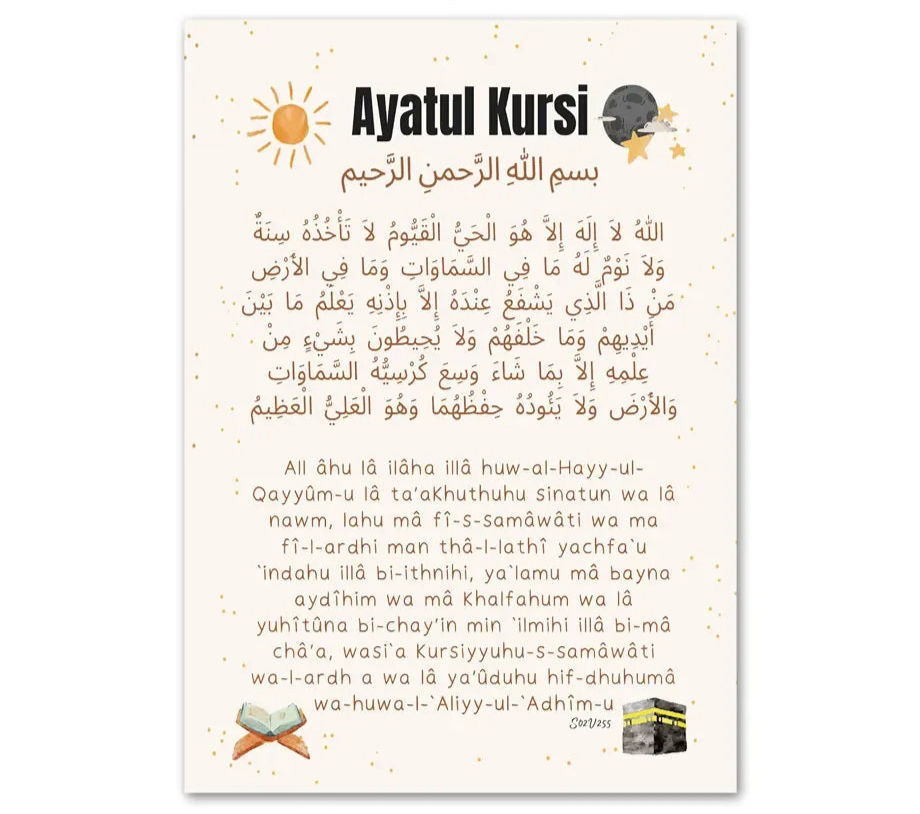 Ayatul Kursi
بسمِ اللّٰهِ الرَّحمنِ الرَّحيم
اللّٰهُ لاَ إِلَهَ إِلاَّ هُوَ الْحَيُّ الْقَيُّومُ لاَ تَأْخُذُهُ سِنَةٌ
وَلاَ نَوْمٌ لَهُ مَا فِي السَّمَاوَاتِ وَمَا فِي الأَرْضِ
مَنْ ذَا الَّذِي يَشْفَعُ عِنْدَهُ إِلاَّ بِإِذْنِهِ يَعْلَمُ مَا بَيْنَ
أَيْدِيهِمْ وَمَا خَلْفَهُمْ وَلاَ يُحِيطُونَ بِشَيْءٍ مِنْ
عِلْمِهِ إِلاَّ بِمَا شَاءَ وَسِعَ كُرْسِيُّهُ السَّمَاوَاتِ
وَالأَرْضَ وَلاَ يَئُودُهُ حِفْظُهُمَا وَهُوَ الْعَلِيُّ الْعَظِيمُ
All âhu lâ ilâha illâ huw-al-Hayy-ul-
Qayyûm-u lâ ta'aKhuthuhu sinatun wa lâ
nawm, lahu mâ fî-s-samâwâti wa ma
fî-l-ardhi man thâ-l-lathî yachfa`u
`indahu illâ bi-ithnihi, ya`lamu mâ bayna
aydîhim wa mâ Khalfahum wa lâ
yuhîtûna bi-chay'in min `ilmihi illâ bi-mâ
châ'a, wasi`a Kursiyyuhu-s-samâwâti
wa-l-ardh a wa lâ ya'ûduhu hif-dhuhumâ
wa-huwa-l-`Aliyy-ul-`Adhîm-u